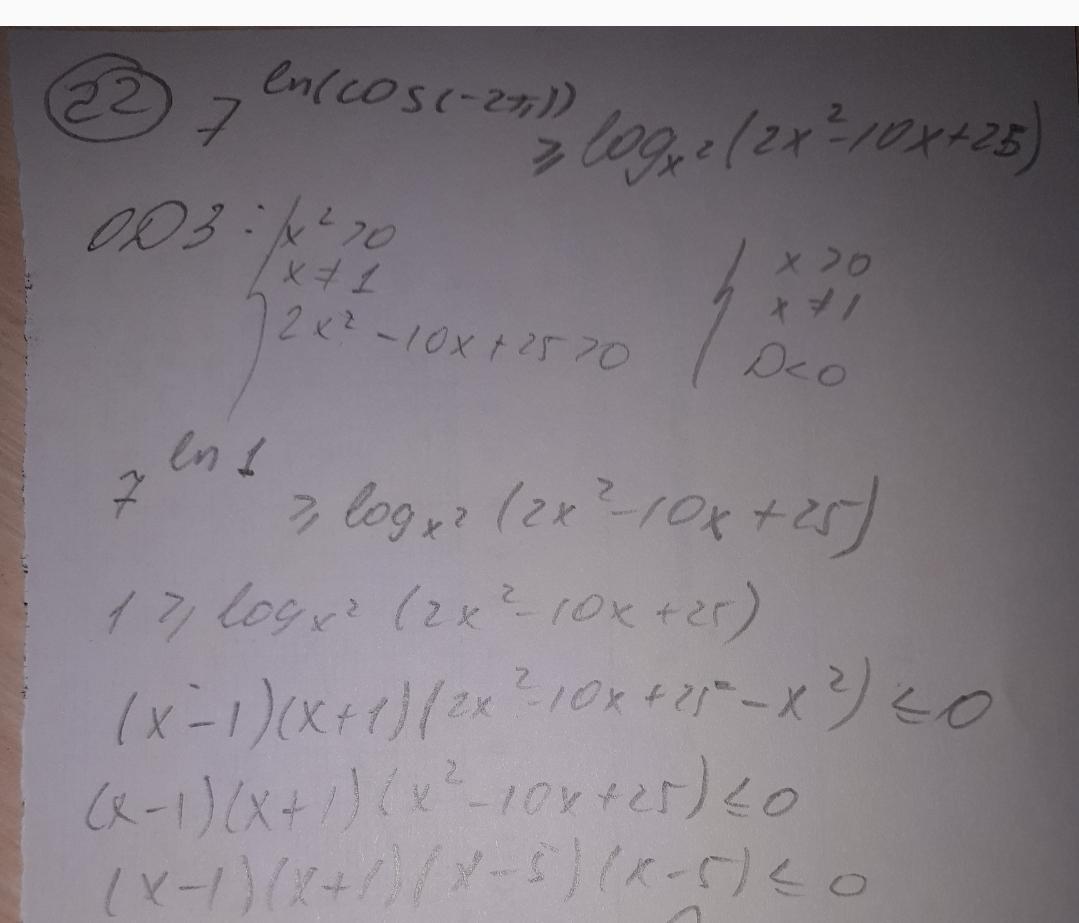 22 7^ln(cos(-2π)) ≥ log_x²(2x²-10x+25)
ОДЗ: { x²>0
x≠1
2x²-10x+25>0
{ x>0
x≠1
D<0
7^ln1 ≥ log_x²(2x²-10x+25)
1 ≥ log_x²(2x²-10x+25)
(x-1)(x+1)(2x²-10x+25-x²) ≤ 0
(x-1)(x+1)(x²-10x+25) ≤ 0
(x-1)(x+1)(x-5)(x-5) ≤ 0